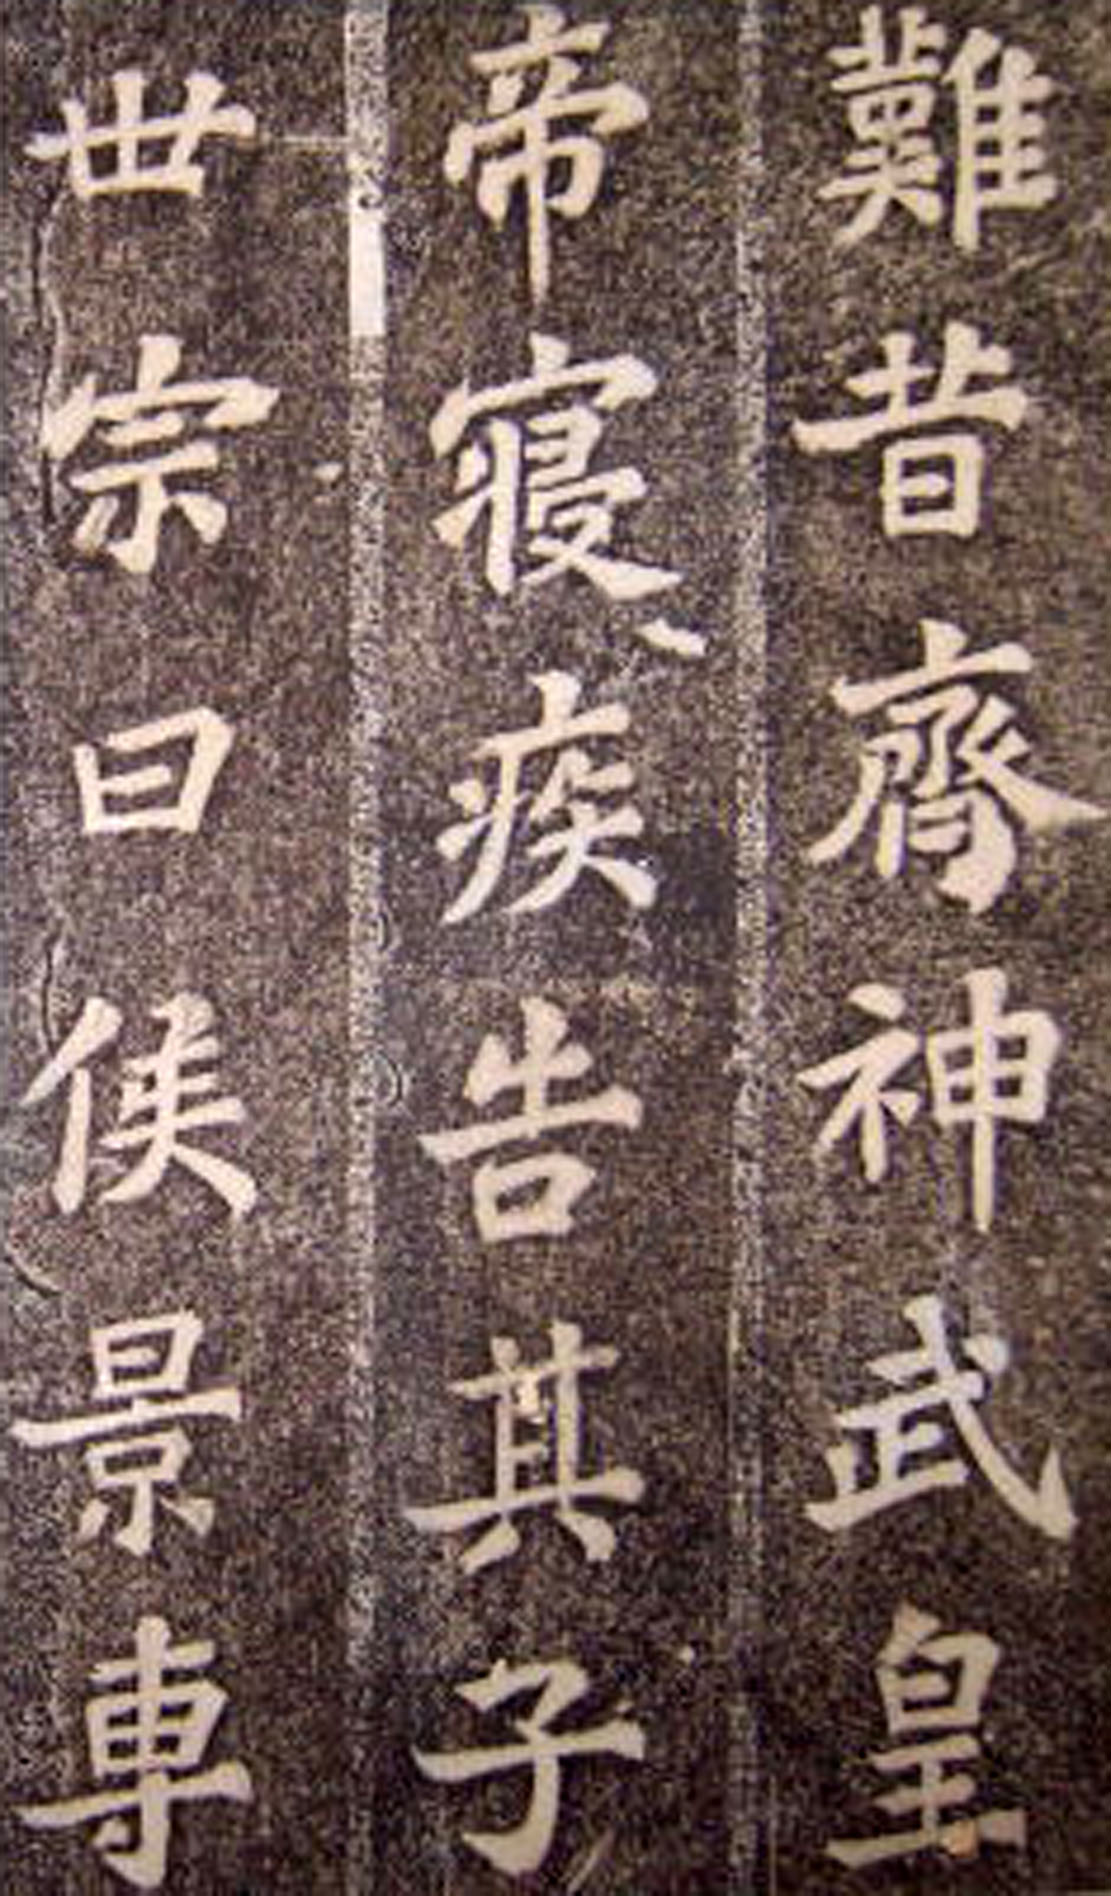 難昔齊神武皇
帝寢疾告其子
世宗曰侯景專